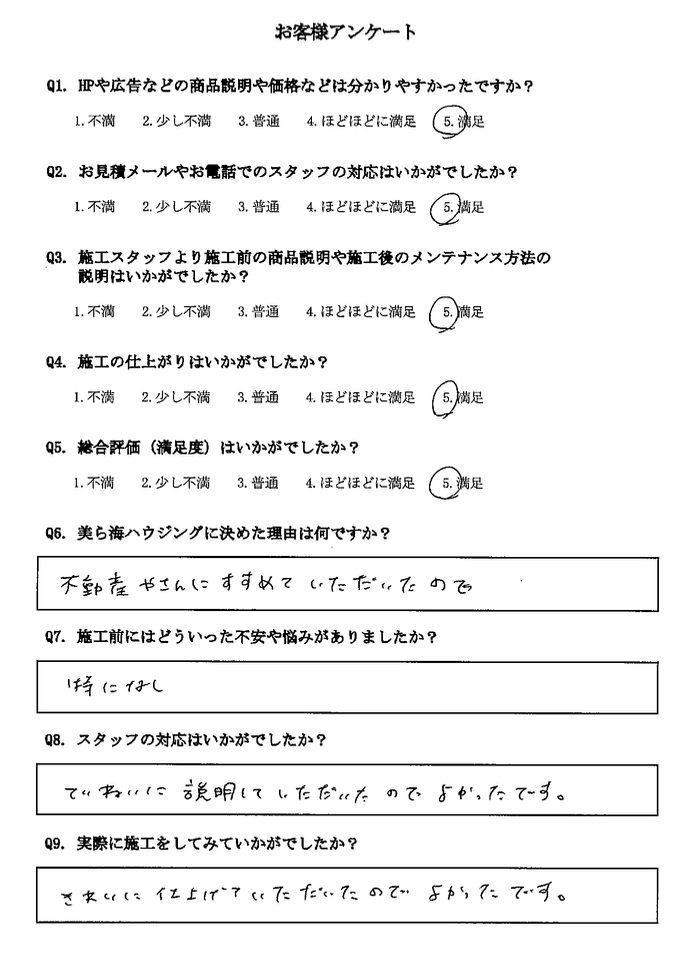 お客様アンケート
Q1. HPや広告などの商品説明や価格などは分かりやすかったですか？
1.不満 2.少し不満 3.普通 4.ほどほどに満足 5.満足
Q2. お見積メールやお電話でのスタッフの対応はいかがでしたか？
1.不満 2.少し不満 3.普通 4.ほどほどに満足 5.満足
Q3. 施工スタッフより施工前の商品説明や施工後のメンテナンス方法の
説明はいかがでしたか？
1.不満 2.少し不満 3.普通 4.ほどほどに満足 5.満足
Q4. 施工の仕上がりはいかがでしたか？
1.不満 2.少し不満 3.普通 4.ほどほどに満足 5.満足
Q5. 総合評価（満足度）はいかがでしたか？
1.不満 2.少し不満 3.普通 4.ほどほどに満足 5.満足
Q6. 美ら海ハウジングに決めた理由は何ですか？
不動産やさんにすすめていただいたので
Q7. 施工前にはどういった不安や悩みがありましたか？
特になし
Q8. スタッフの対応はいかがでしたか？
ていねいに説明していただいたのでよかったです。
Q9. 実際に施工をしてみていかがでしたか？
きれいに仕上げていただいたのでよかったです。